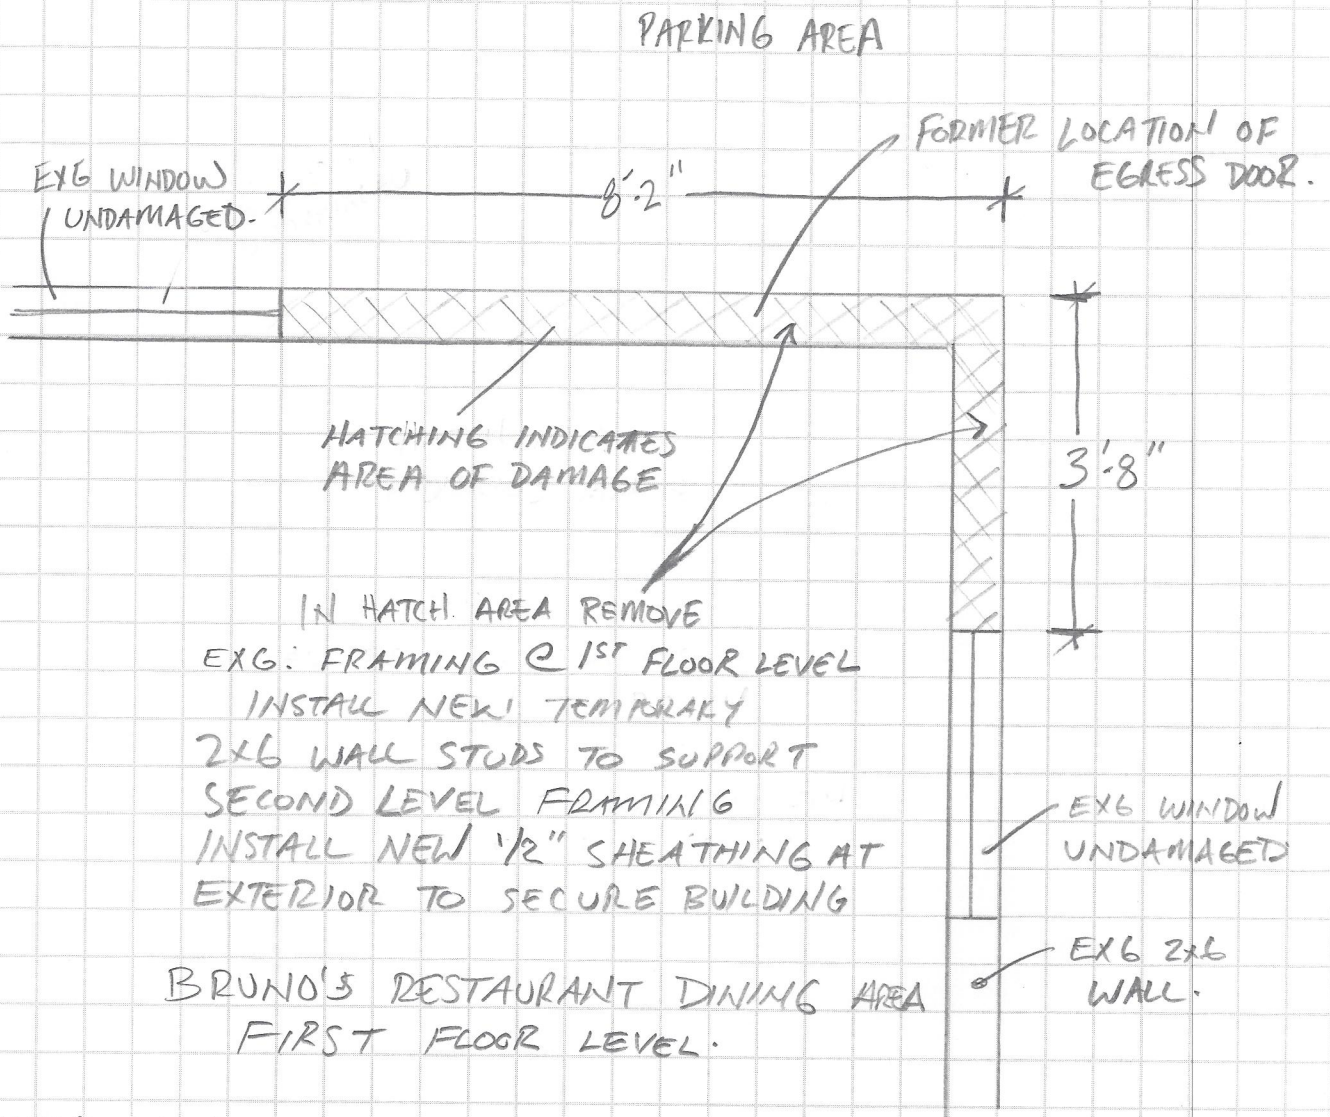 PARKING AREA
FORMER LOCATION OF
EGRESS DOOR.
EXG WINDOW
UNDAMAGED.
8'-2"
HATCHING INDICATES
AREA OF DAMAGE
3'-8"
IN HATCH. AREA REMOVE
EXG. FRAMING @ 1ST FLOOR LEVEL
INSTALL NEW TEMPORARY
2x6 WALL STUDS TO SUPPORT
SECOND LEVEL FRAMING
INSTALL NEW 1/2" SHEATHING AT
EXTERIOR TO SECURE BUILDING
EXG WINDOW
UNDAMAGED
EXG 2x6
WALL.
BRUNO'S RESTAURANT DINING AREA
FIRST FLOOR LEVEL.